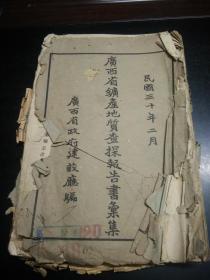 民國三十年二月
廣西省鑛產地質查探報告書彙集
廣西省政府建設廳編